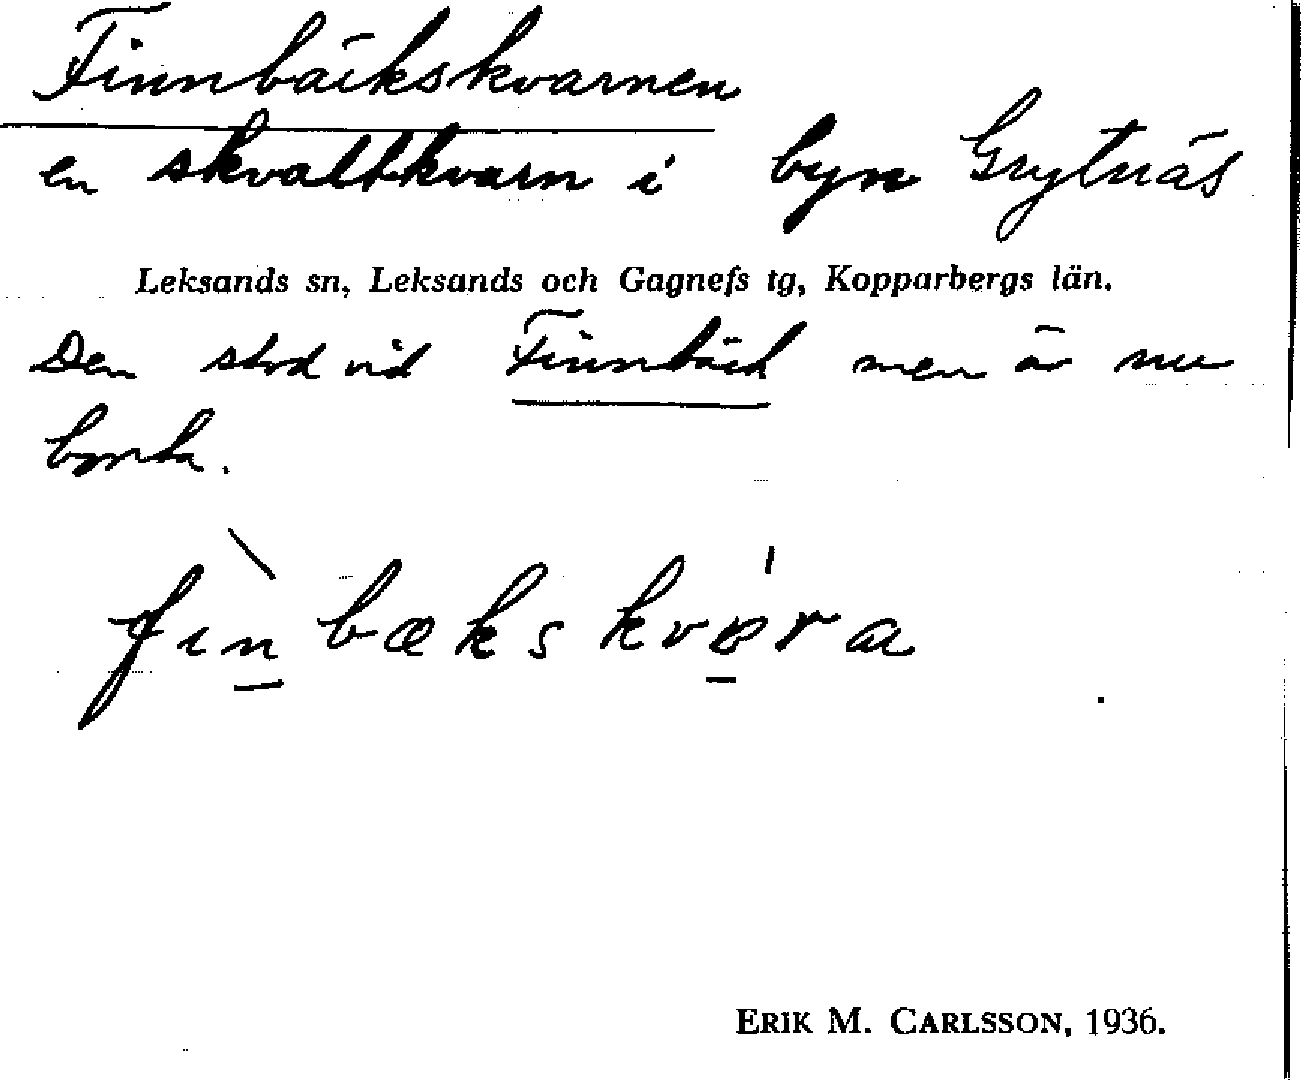 Finnbäckskvarnen
en skvaltkvarn i byn Grytnäs
Leksands sn, Leksands och Gagnefs tg, Kopparbergs län.
Den stod vid Finnbäck men är nu
borta.
fìn̲bækskvɒ̲́ra
ERIK M. CARLSSON, 1936.